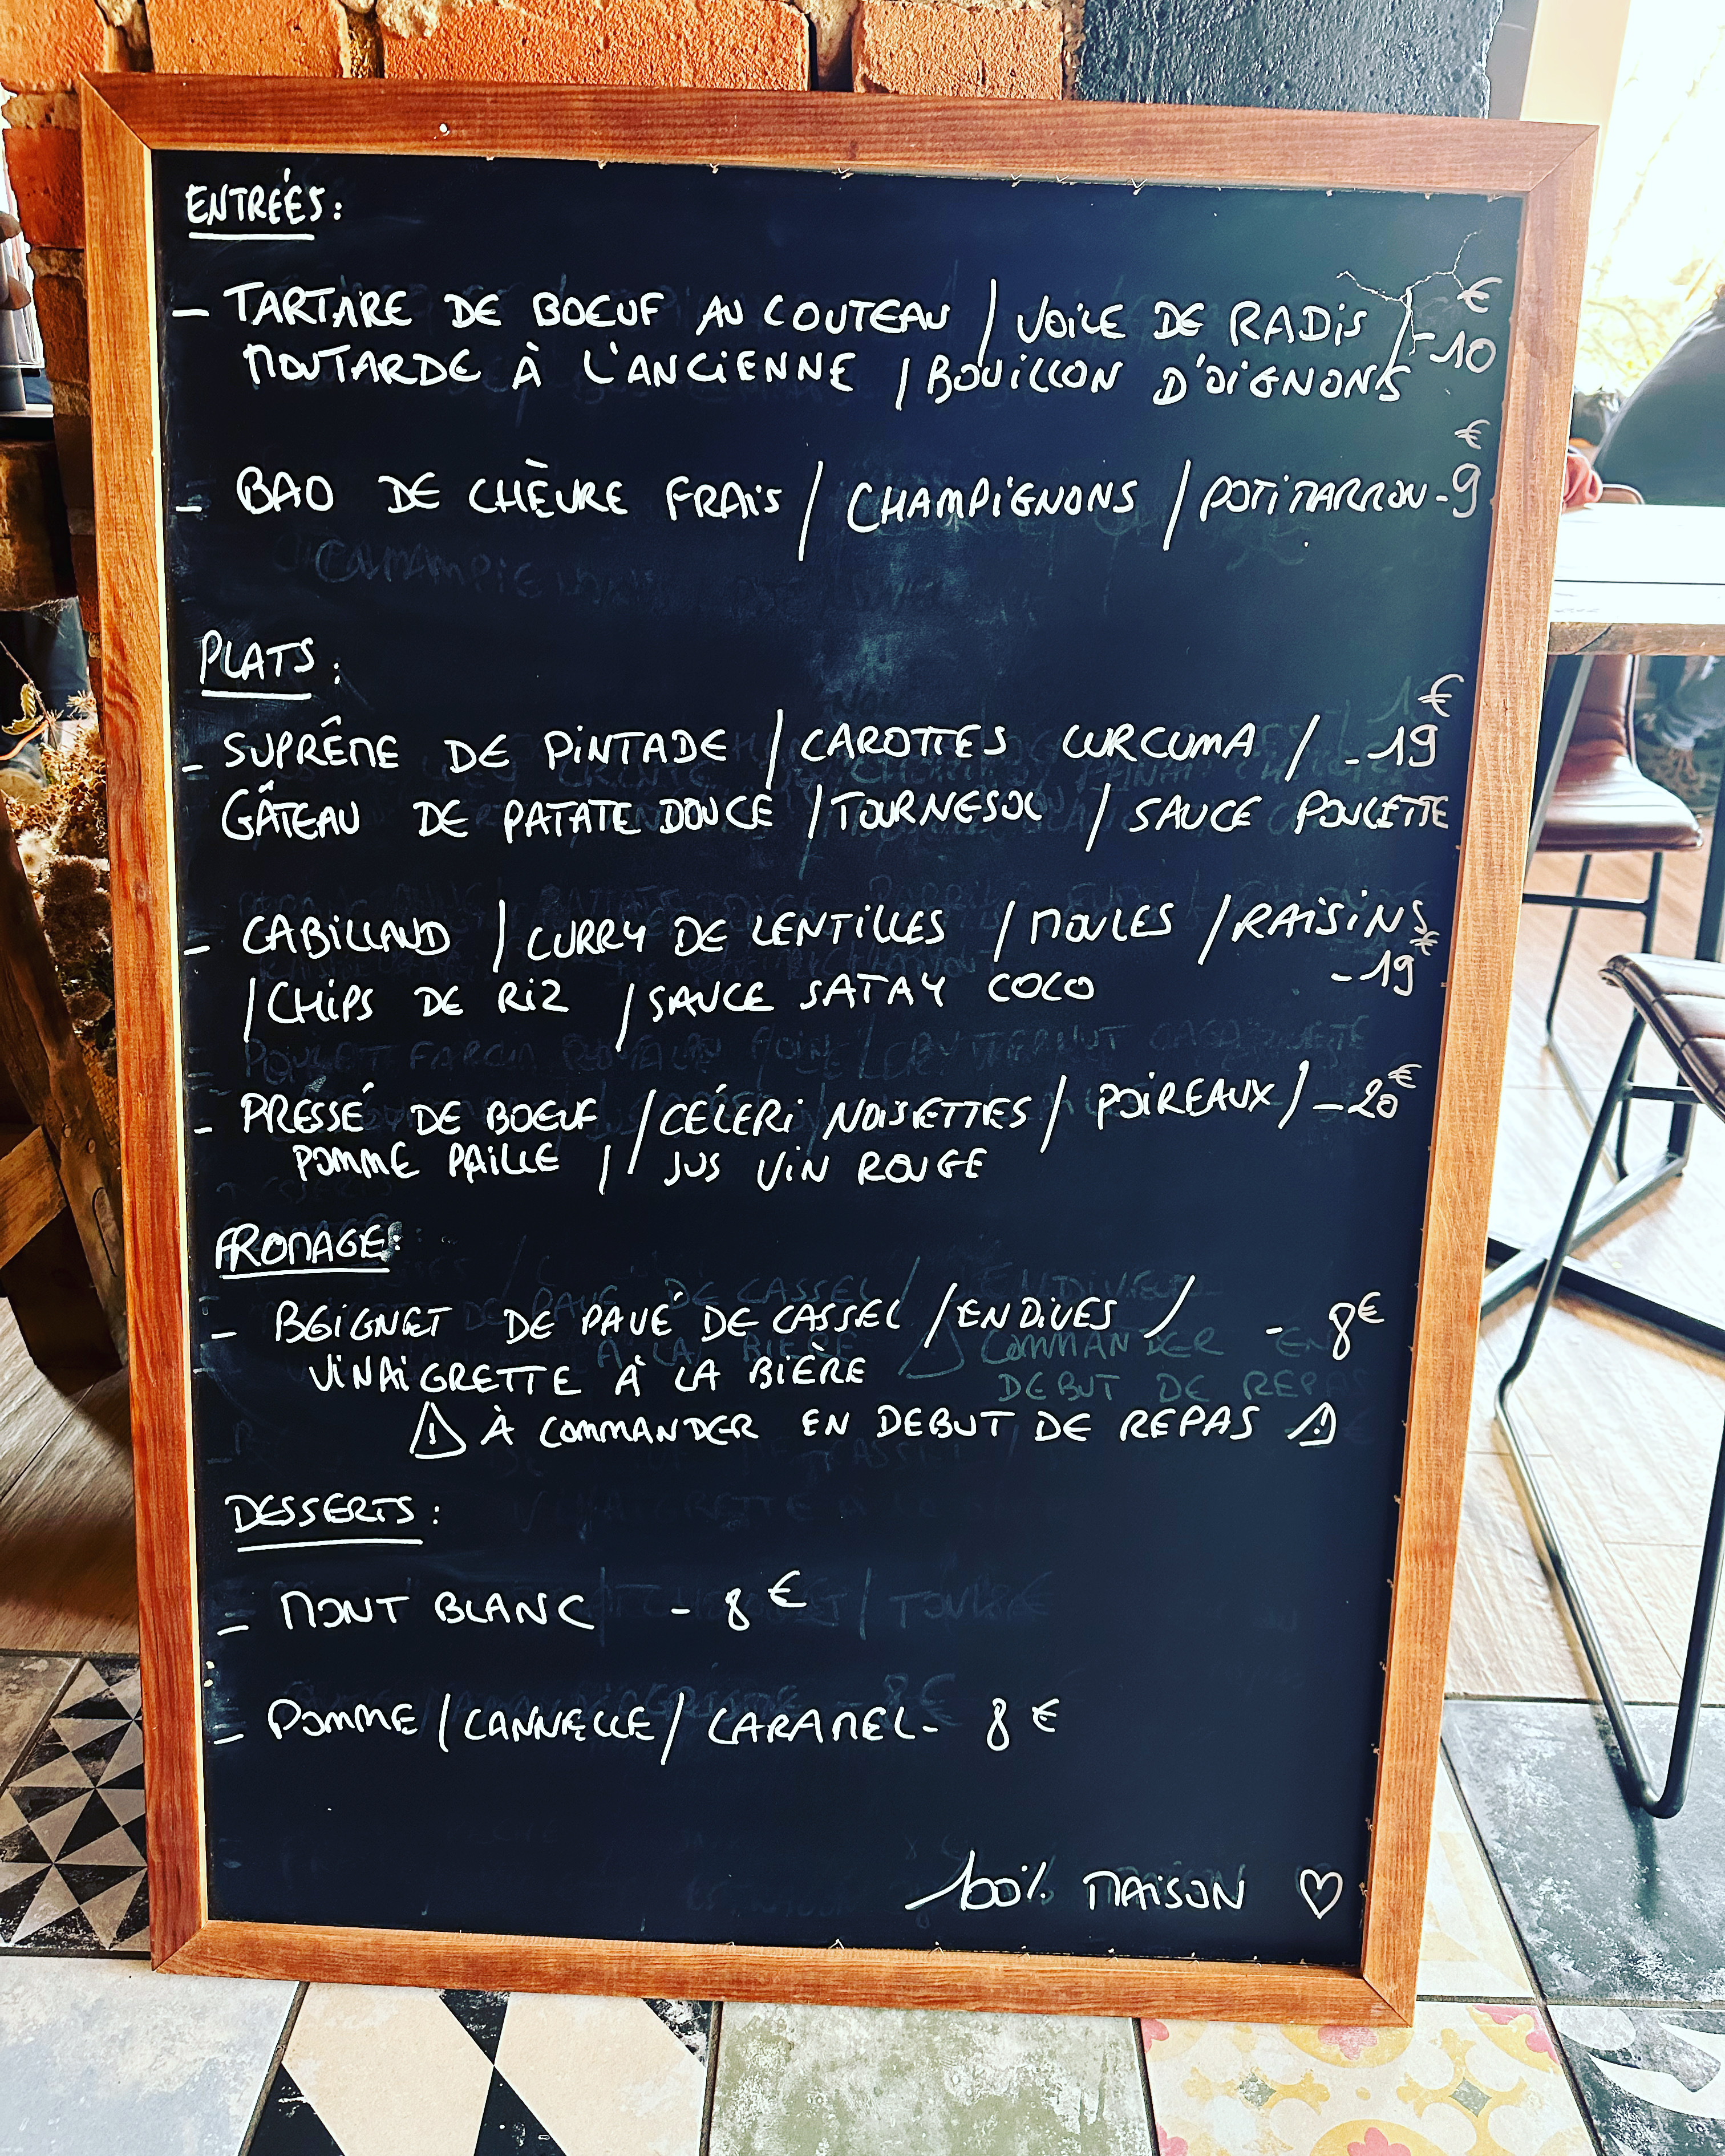 ENTRÉÉS :
- TARTARE DE BOEUF AU COUTEAU / VOILE DE RADIS / - 10 €
MOUTARDE À L'ANCIENNE / BOUILLON D'OIGNONS
- BAO DE CHÈVRE FRAIS / CHAMPIGNONS / POTIMARRON - 9 €
PLATS :
- SUPRÊME DE PINTADE / CAROTTES CURCUMA / - 19 €
GÂTEAU DE PATATE DOUCE / TOURNESOL / SAUCE POULETTE
- CABILLAUD / CURRY DE LENTILLES / MOULES / RAISINS
/ CHIPS DE RIZ / SAUCE SATAY COCO - 19 €
- PRESSÉ DE BOEUF / CÉLERI NOISETTES / POIREAUX / - 20 €
POMME PAILLE / / JUS VIN ROUGE
FROMAGE :
- BEIGNET DE PAVÉ DE CASSEL / ENDIVES / - 8 €
VINAIGRETTE À LA BIÈRE
⚠ À COMMANDER EN DEBUT DE REPAS ⚠
DESSERTS :
- MONT BLANC - 8 €
- POMME / CANNELLE / CARAMEL - 8 €
100% MAISON ♡